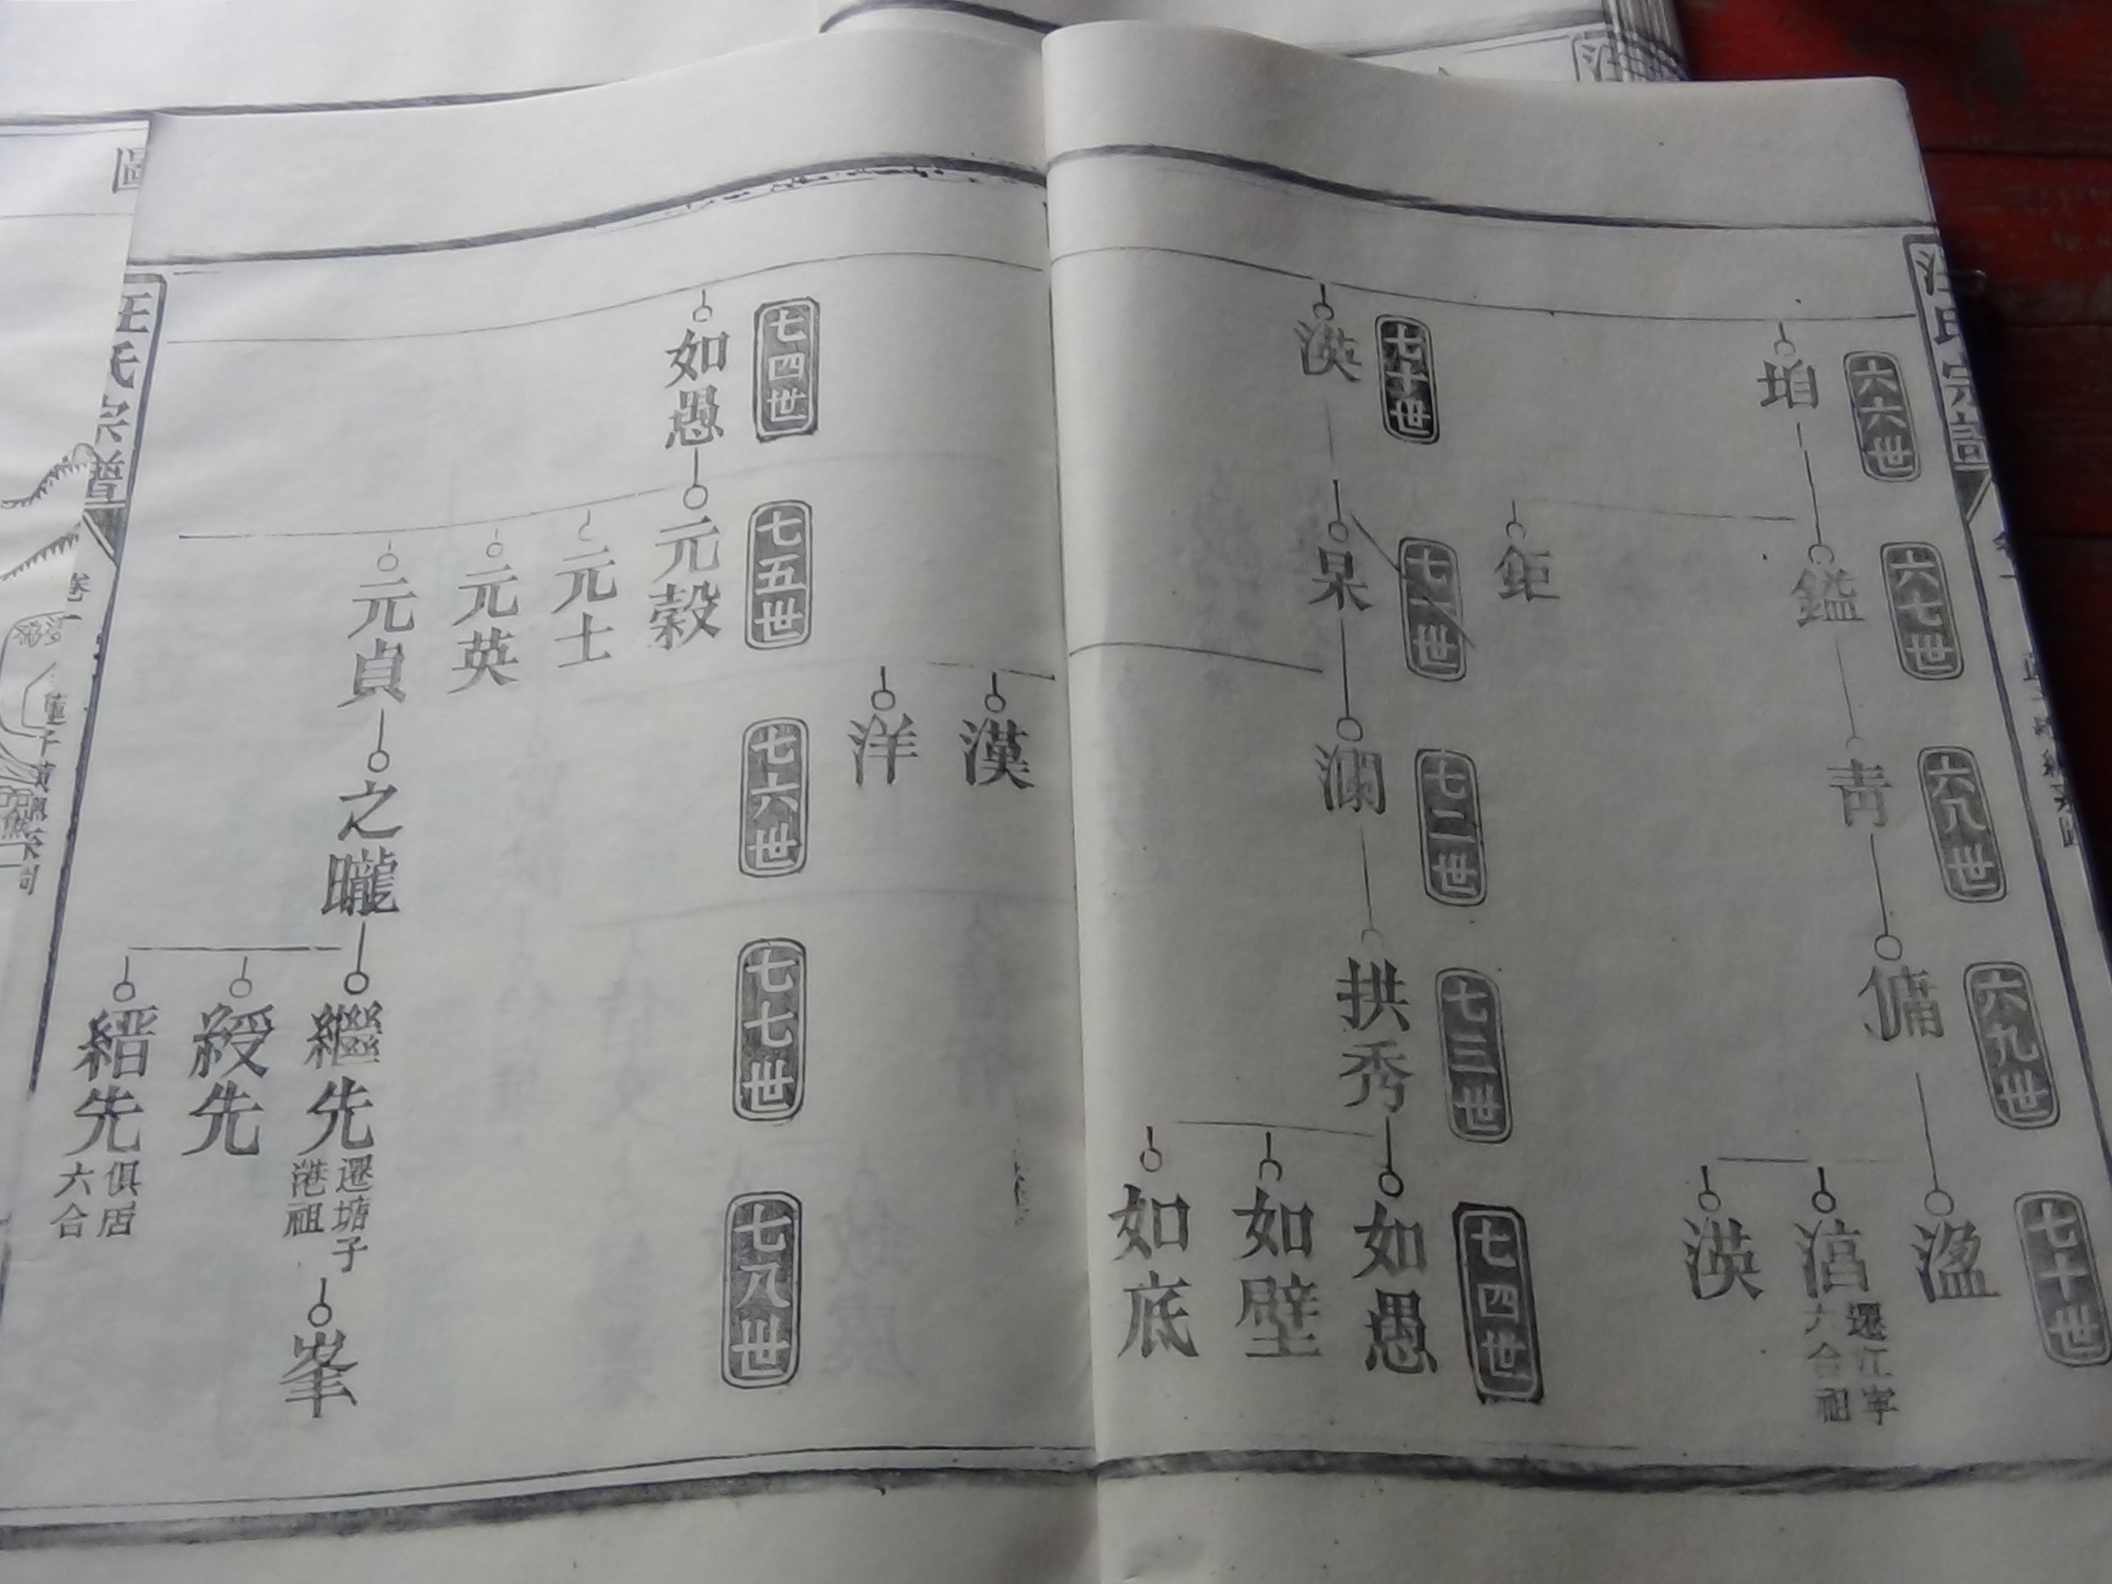 汪氏宗譜
六六世
六七世
鉅
六八世
靑
六九世
傭
七十世
溋
渶
遷江寧
六合祖
七十世
渶
七一世
杲
七二世
七三世
拱秀
七四世
如愚
如壁
如底
漢
洋
七四世
如愚
七五世
元穀
元士
元英
元貞
七六世
之曨
七七世
繼先
遷塘子
港祖
綬先
縉先
俱居
六合
七八世
峯
汪氏宗譜
卷一
圖